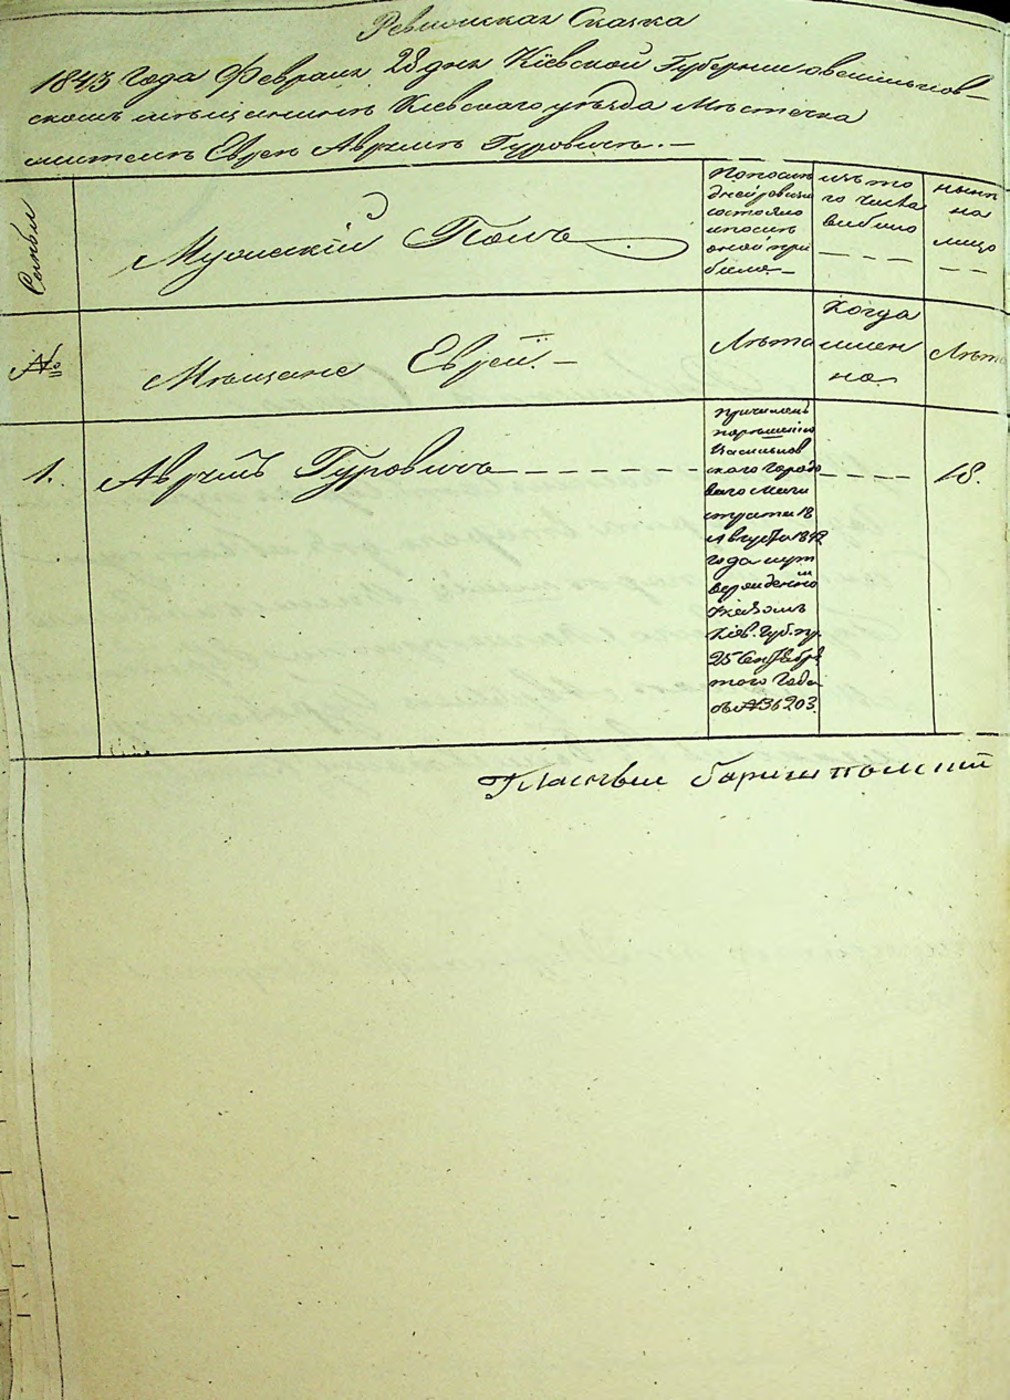 Ревизская Сказка
1843 Года Февраля 28 дня Кіевской Губерніи о васильков-
скомъ мѣщанинѣ Кіевскаго уѣзда Мѣстечка
жителѣ Евреѣ Аврумѣ Гуровичѣ. —
Семьи
Мужескій Полъ
По послѣ
дней ревизіи
состояло
и послѣ
оной при
было —
изъ то
го числа
выбыло
нынѣ
на
лицо
№
Мѣщане Евреи. —
Лѣта
Когда
имен
но
Лѣта
1. Аврумъ Гуровичъ
причисленъ
по рѣшенію
Васильков
скаго Городо
ваго Маги
страта 18
Августа 1842
года
Указомъ
Кіев. Губ. пр.
25 Сентября
того Года
за № 36203.
18.